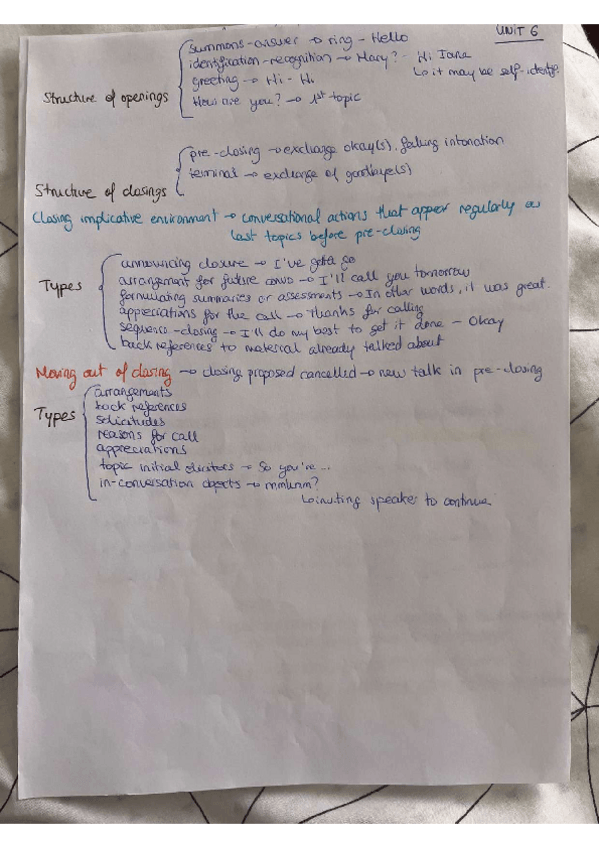 UNIT 6
summons-answer → ring - Hello
identification-recognition → Mary? - Hi Jane
↳ it may be self-identif.
greeting → Hi - Hi
Structure of openings
How are you? → 1st topic
pre-closing → exchange okay(s), falling intonation
terminal → exchange of goodbye(s)
Structure of closings
Closing implicative environment → conversational actions that appear regularly as
last topics before pre-closing
announcing closure → I've gotta go
arrangement for future convo → I'll call you tomorrow
Types
formulating summaries or assessments → In other words, it was great.
appreciations for the call → Thanks for calling
sequence-closing → I'll do my best to get it done - Okay
back references to material already talked about
Moving out of closing → closing proposed cancelled → new talk in pre-closing
arrangements
back references
Types
solicitudes
reasons for call
appreciations
topic initial elicitors → So you're...
in-conversation objects → mmhmm?
↳ inviting speaker to continue